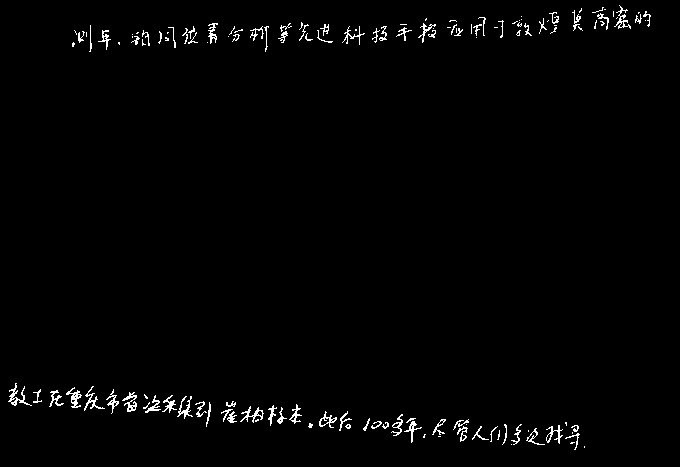 测年、铅同位素分析等先进科技手段应用于敦煌莫高窟的
教士在重庆市首次采集到崖柏标本。此后100多年,尽管人们多次找寻